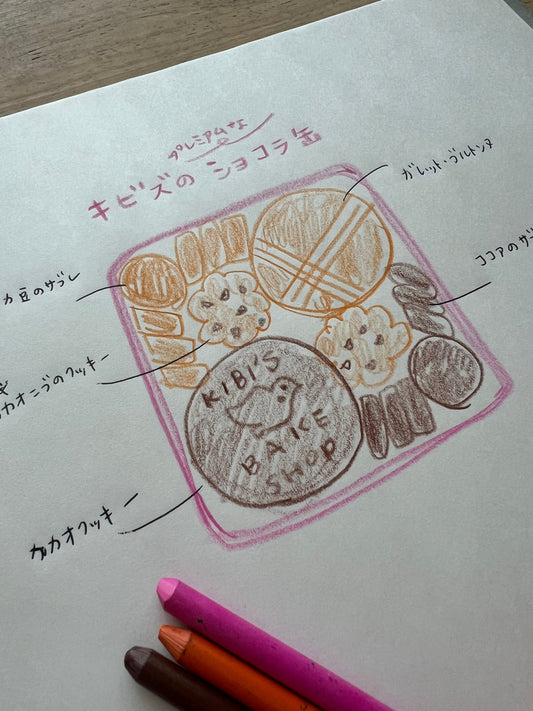 プレミアムな
キビズのショコラ缶
ガレット・ブルトンヌ
カ豆のサブレ
ココアのサブ
カオニブのクッキー
カカオクッキー
KIBI'S
BAKE
SHOP